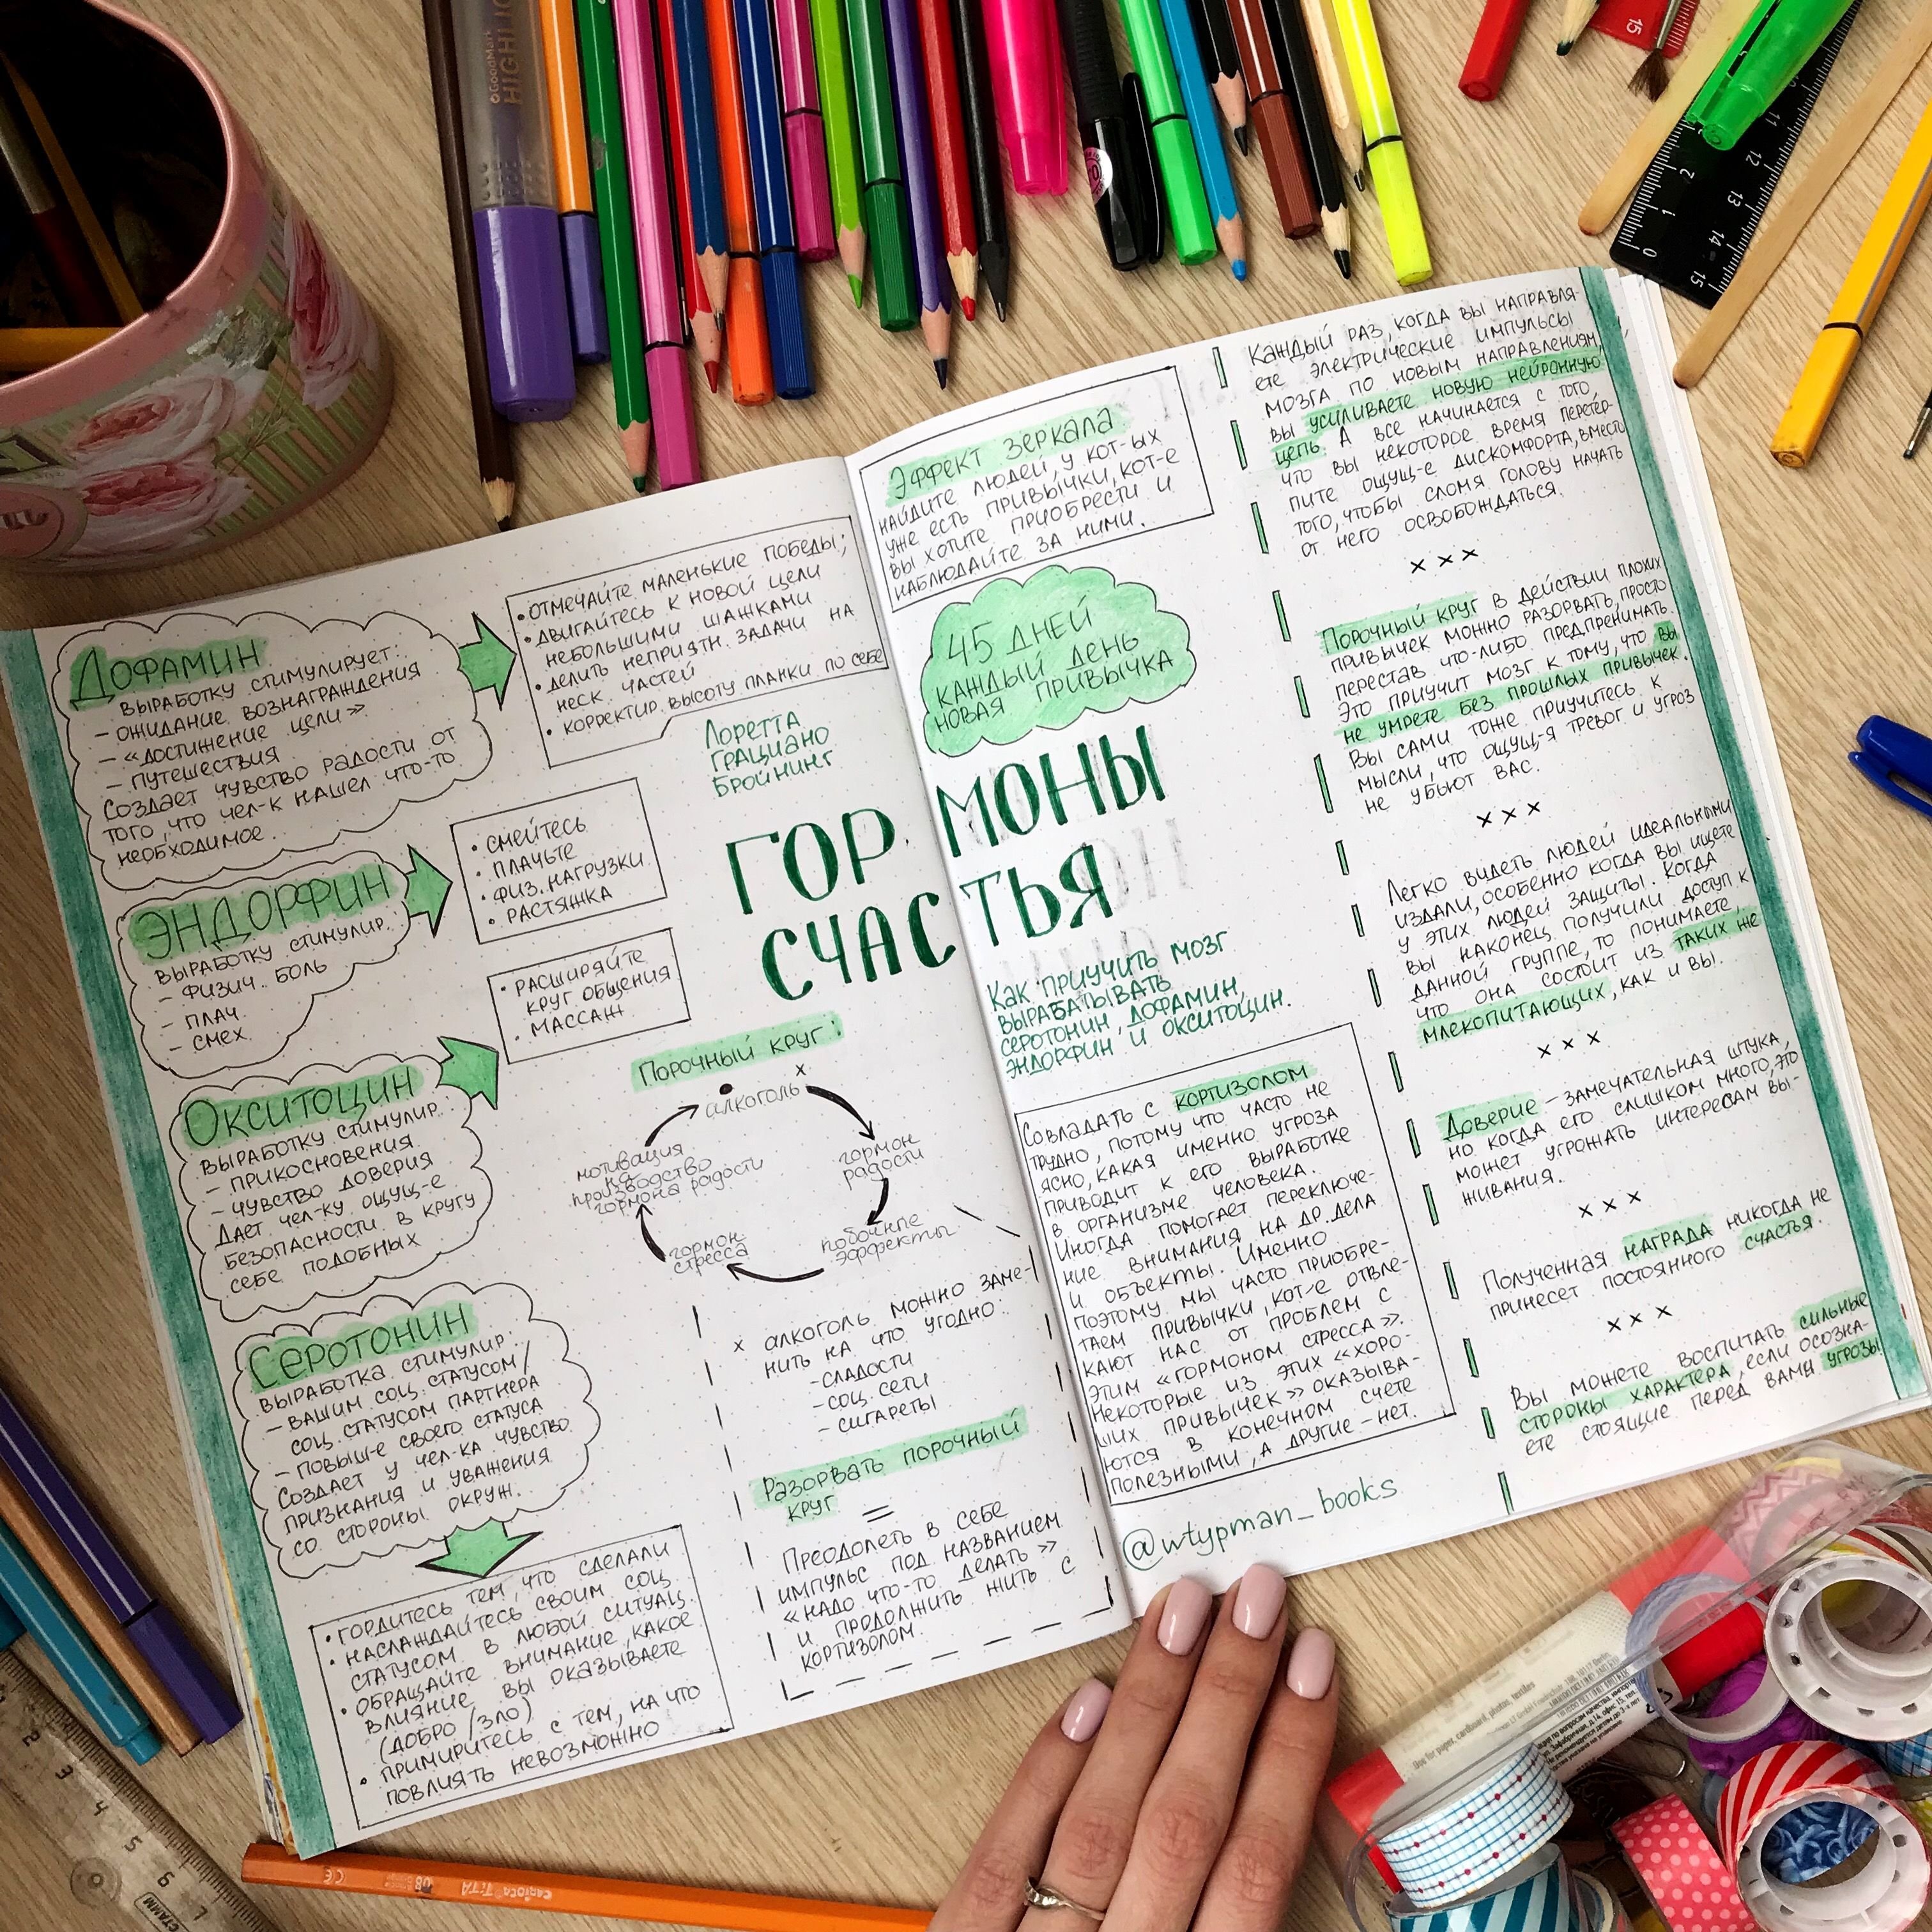 Дофамин
выработку стимулирует:
– ожидание вознаграждения
– «достижение цели»
– путешествия
Создает чувство радости от
того, что чел-к нашел что-то
необходимое.
• отмечайте маленькие победы;
• двигайтесь к новой цели
небольшими шажками
• делить неприятн. задачи на
неск частей
• корректир. высоту планки по себе
Эндорфин
выработку стимулир.:
– физич. боль
– плач
– смех
• смейтесь
• плачьте
• физ. нагрузки
• растяжка
Окситоцин
выработку стимулир.:
– прикосновения
– чувство доверия
Дает чел-ку ощущ-е
безопасности в кругу
себе подобных
• расширяйте
круг общения
• массаж
Серотонин
выработка стимулир.:
– вашим соц. статусом/
соц. статусом партнера
– повыш-е своего статуса
Создает у чел-ка чувство
признания и уважения
со стороны окруж.
• гордитесь тем, что сделали
• наслаждайтесь своим соц.
статусом в любой ситуац.
• обращайте внимание, какое
влияние вы оказываете
(добро/зло)
• примиритесь с тем, на что
повлиять невозможно
Лоретта
Грациано
Бройнинг
ГОРМОНЫ
СЧАСТЬЯ
Как приучить мозг
вырабатывать
серотонин, дофамин,
эндорфин и окситоцин.
Порочный круг:
алкоголь x
гормон
радости
побочные
эффекты
гормон
стресса
мотивация
на
производство
гормона радости
x алкоголь можно заме-
нить на что угодно:
– сладости
– соц. сети
– сигареты
Разорвать порочный
круг
=
Преодолеть в себе
импульс под названием
«надо что-то делать»
и продолжить жить с
кортизолом.
Эффект зеркала
найдите людей, у кот-ых
уже есть привычки, кот-е
вы хотите приобрести и
наблюдайте за ними.
45 дней
каждый день
новая привычка
Совладать с кортизолом
трудно, потому что часто не
ясно, какая именно угроза
приводит к его выработке
в организме человека.
Иногда помогает переключе-
ние внимания на др. дела
и объекты. Именно
поэтому мы часто приобре-
таем привычки, кот-е отвле-
кают нас от проблем с
этим «гормоном стресса».
Некоторые из этих «хоро-
ших привычек» оказыва-
ются в конечном счете
полезными, а другие – нет.
@wtypman_books
Каждый раз, когда вы направля-
ете электрические импульсы
мозга по новым направлениям,
вы усиливаете новую нейронную
цепь. А все начинается с того,
что вы некоторое время перетер-
пите ощущ-е дискомфорта, вместо
того, чтобы сломя голову начать
от него освобождаться.
x x x
Порочный круг в действии плохих
привычек можно разорвать, просто
перестав что-либо предпренимать.
Это приучит мозг к тому, что вы
не умрете без прошлых привычек.
Вы сами тоже приучитесь к
мысли, что ощущ-я тревог и угроз
не убьют вас.
x x x
Легко видеть людей идеальными
издали, особенно когда вы ищете
у этих людей защиты. Когда
вы наконец получили доступ к
данной группе, то понимаете,
что она состоит из таких же
млекопитающих, как и вы.
x x x
Доверие – замечательная штука,
но когда его слишком много, это
может угрожать интересам вы-
живания.
x x x
Полученная награда никогда не
принесет постоянного счастья.
x x x
Вы можете воспитать сильные
стороны характера, если осозна-
ете стоящие перед вами угрозы
GoodMark
HIGHLIG
carioca TITA